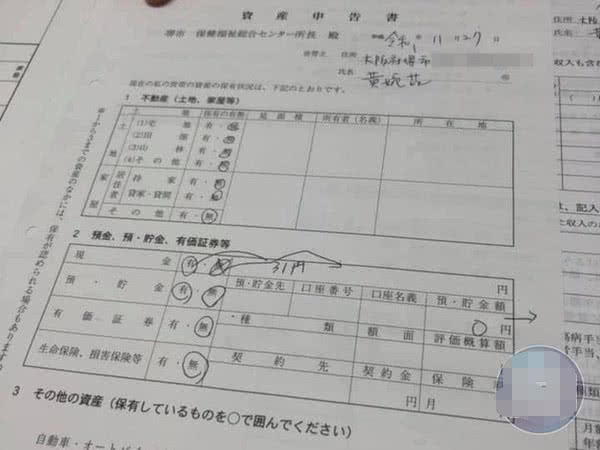 資産申告書
堺市 保健福祉総合センター所長 殿
令和1 11月27日
住所 大阪府堺市
氏名 黄婉茹
現在の私の資産の保有状況は、下記のとおりです。
1 不動産（土地、家屋等）
土地 保有の有無 延面積 所有者（名義） 所在地
土地 (1)宅地 有・無
(2)田畑 有・無
(3)山林 有・無
(4)その他 有・無
家屋 居住者 持家 有・無
貸家・貸間 有・無
その他 有・無
2 預金、預・貯金、有価証券等
現金 有・無 31円 円
預・貯金 有・無 預・貯金先 口座番号 口座名義 預・貯金額
0円
有価証券 有・無 種類 額面 評価概算額
生命保険、損害保険等 有・無 契約先 契約金 保険
円 月
3 その他の資産（保有しているものを○で囲んでください）
自動車・オートバイ
のなかには、保有が認められる場合もあります
収入も含
記入
種類
月額